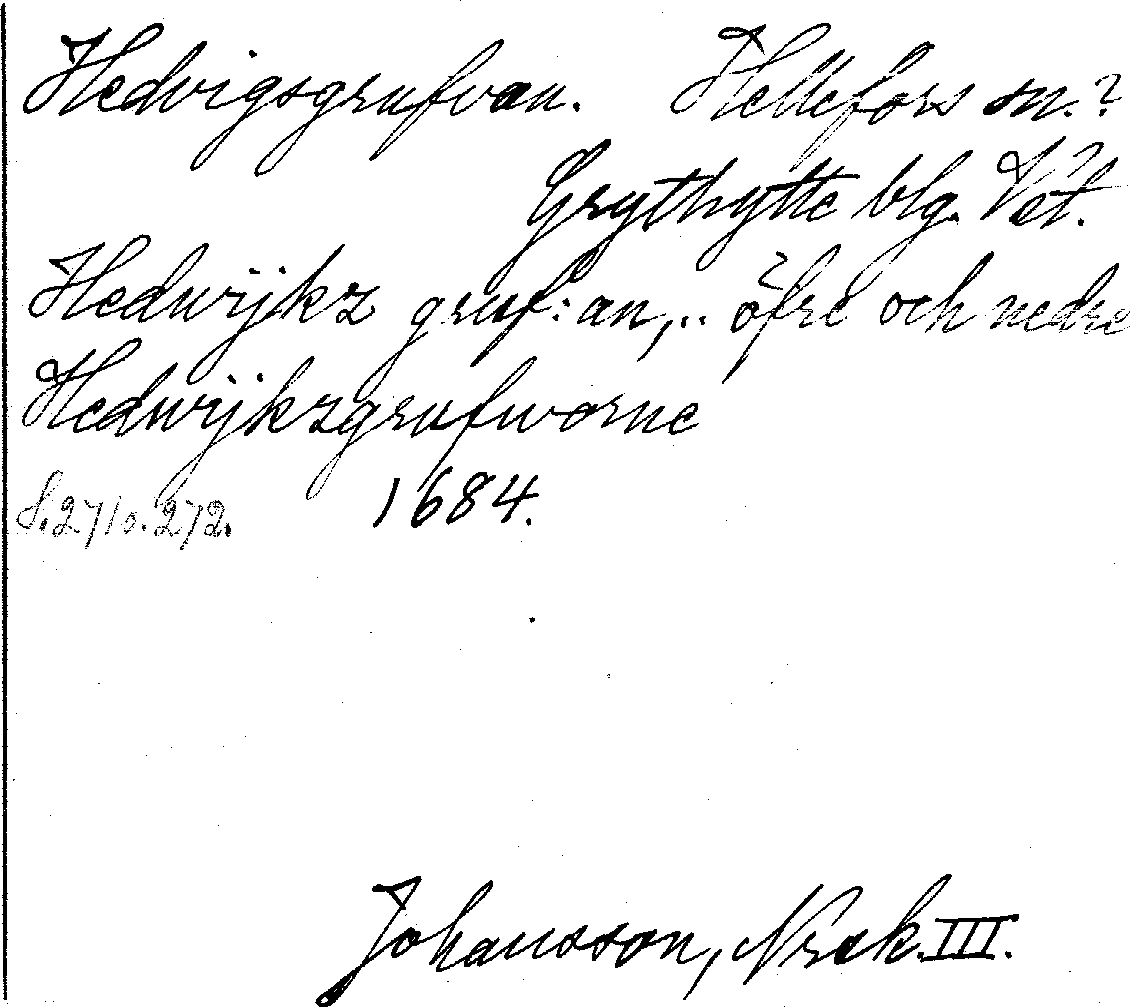 Hedvigsgrufvan. Hellefors sn.?
Grythytte blg. Vet.
Hedwijkz gruf:an,.. öfre och nedre
Hedwijkzgrufworne
S. 271 o. 272. 1684.
Johansson, Nrak. III.